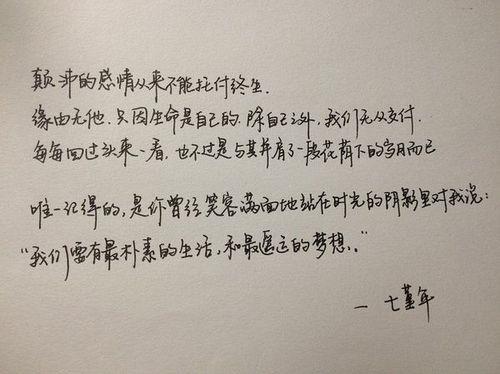 颠沛的感情从来不能托付终生.
缘由无他.只因生命是自己的.除自己之外,我们无从交付.
每每回过头来一看,也不过是与其并肩了一段花荫下的岁月而已
唯一记得的,是你曾经笑容满面地站在时光的阴影里对我说:
“我们要有最朴素的生活,和最遥远的梦想.”
— 七堇年